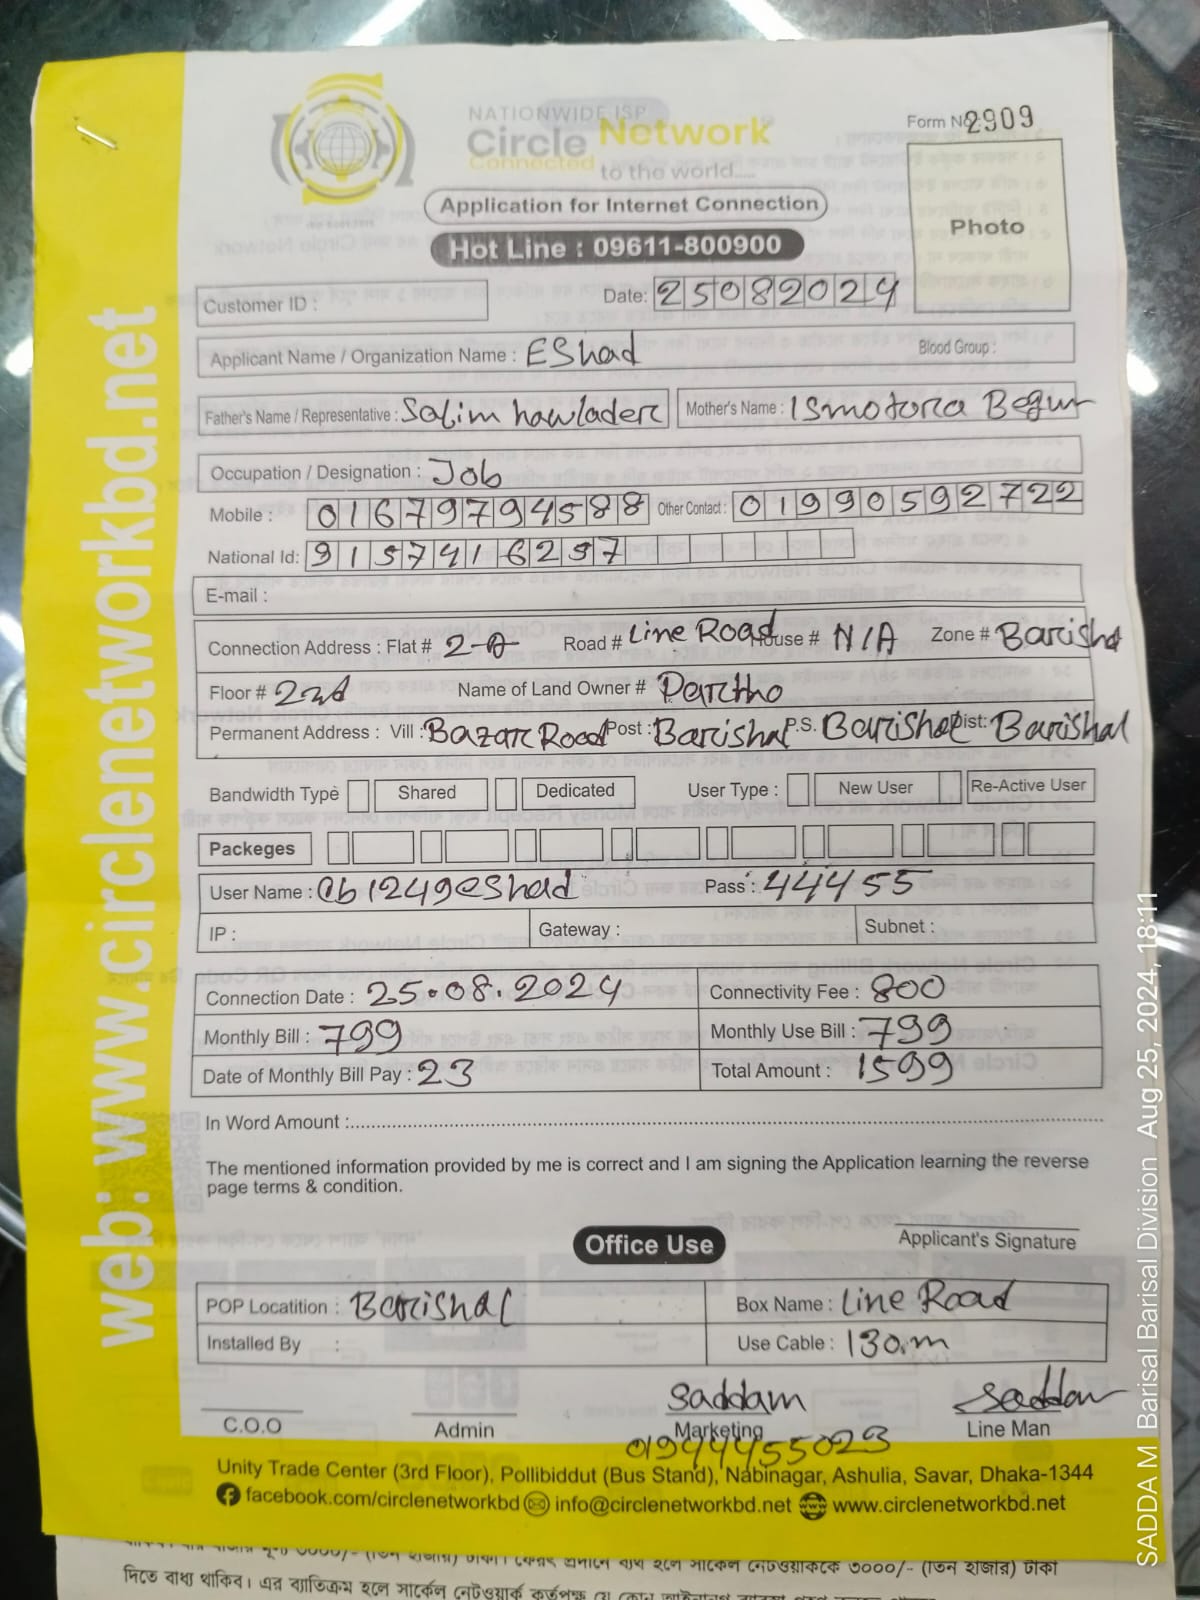 NATIONWIDE ISP
Circle Network
Connected to the world.....
Form No 2909
Application for Internet Connection
Photo
Hot Line : 09611-800900
Customer ID :
Date: 25082024
Applicant Name / Organization Name : EShad
Blood Group :
Father's Name / Representative : Salim hawlader Mother's Name : ISmotora Begum
Occupation / Designation : Job
Mobile : 01679794588 Other Contact : 01990592722
National Id:
E-mail :
Connection Address : Flat # 2-A Road # Line Road House # N/A Zone # Barishal
Floor # 2nd Name of Land Owner # Partho
Permanent Address : Vill : Bazar Road Post : Barishal P.S. Barishal Dist: Barishal
Bandwidth Type Shared Dedicated User Type : New User Re-Active User
Packeges
User Name : Pass : 44455
IP : Gateway : Subnet :
Connection Date : 25.08.2024 Connectivity Fee : 800
Monthly Bill : 799 Monthly Use Bill : 799
Date of Monthly Bill Pay : 23 Total Amount : 1599
In Word Amount :
The mentioned information provided by me is correct and I am signing the Application learning the reverse
page terms & condition.
Office Use
Applicant's Signature
POP Locatition : Barishal Box Name : Line Road
Installed By : Use Cable : 130.m
Saddam Saddam
C.O.O Admin Marketing Line Man
01944455023
Unity Trade Center (3rd Floor), Pollibiddut (Bus Stand), Nabinagar, Ashulia, Savar, Dhaka-1344
facebook.com/circlenetworkbd info@circlenetworkbd.net www.circlenetworkbd.net
web: www.circlenetworkbd.net
SADDA M Barisal Barisal Division Aug 25, 2024, 18:11
দিতে বাধ্য থাকিব। এর ব্যতিক্রম হলে সার্কেল নেটওয়ার্ক কর্তৃপক্ষ যে কোন